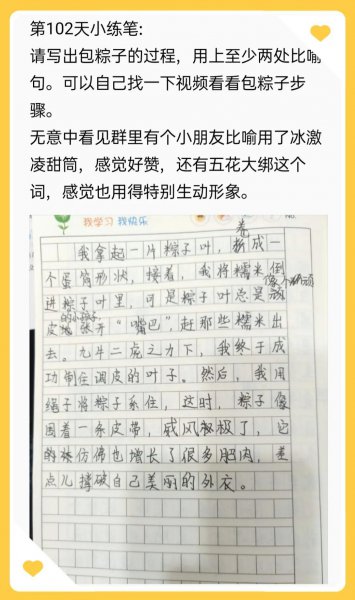 第102天小练笔:
请写出包粽子的过程，用上至少两处比喻
句。可以自己找一下视频看看包粽子步
骤。
无意中看见群里有个小朋友比喻用了冰激
凌甜筒，感觉好赞，还有五花大绑这个
词，感觉也用得特别生动形象。
我学习 我快乐
我拿起一片粽子叶，卷成一
个蛋筒形状，接着，我将糯米倒
进粽子叶里，可是粽子叶总是像个顽
皮的小孩子张开“嘴巴”，赶那些糯米出
去。九牛二虎之力下，我终于成
功制住调皮的叶子。然后，我用
绳子将粽子系住，这时，粽子像
围着一条皮带，威风极了，它
仿佛也增长了很多肥肉，差
点儿撑破自己美丽的外衣。